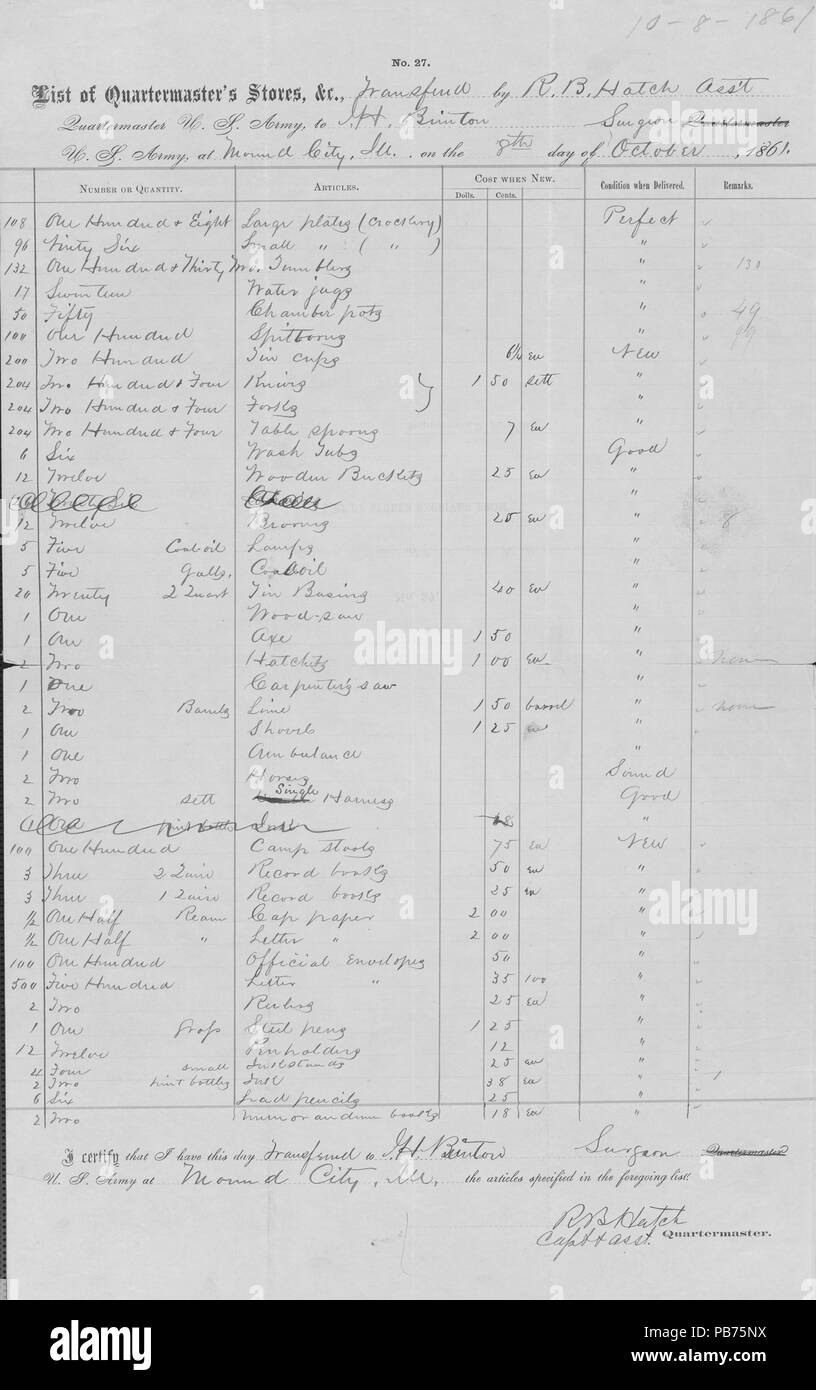 10-8-1861
No. 27.
List of Quartermaster's Stores, &c., Transferred by R. B. Hatch Asst
Quartermaster U. S. Army, to J. H. Brinton Surgeon Quartermaster
U. S. Army, at Mound City, Ill. on the 8th day of October, 1861.
Number or Quantity. Articles. Cost when New. Condition when Delivered. Remarks.
Dolls. Cents.
108 One Hundred & Eight Large plates (Crockery) Perfect
96 Ninety Six Small " ( " ) "
132 One Hundred & Thirty Two Tumblers " 130
17 Seventeen Water jugs "
50 Fifty Chamber pots " 49
100 One Hundred Spittoons " 99
200 Two Hundred Tin cups 6¼ ea New
204 Two Hundred & Four Knives } 1 50 sett "
204 Two Hundred & Four Forks "
204 Two Hundred & Four Table spoons 7 ea "
6 Six Wash Tubs Good
12 Twelve Wooden Buckets 25 ea "
"
12 Twelve Brooms 25 ea " 8
5 Five Coal oil Lamps "
5 Five Galls. Coal oil "
20 Twenty 2 Quart Tin Basins 40 ea "
1 One Wood-saw "
1 One Axe 1 50 "
2 Two Hatchets 1 00 ea " none
1 One Carpenter's saw "
2 Two Barrels Lime 1 50 barrel " none
1 One Shovel 1 25 ea "
1 One Ambulance "
2 Two Horses Sound
2 Two sett Single Harness Good
One pint bottle Ink 38 "
100 One Hundred Camp stools 75 ea New
3 Three 2 Quire Record books 50 ea "
3 Three 1 Quire Record books 25 ea "
½ One Half Ream Cap paper 2 00 "
½ One Half " Letter " 2 00 "
100 One Hundred Official Envelopes 50 "
500 Five Hundred Letter " 35 100 "
2 Two Rulers 25 ea "
1 One gross Steel pens 1 25 "
12 Twelve Penholders 12 "
4 Four small Inkstands 25 ea "
2 Two pint bottles Ink 38 ea " 1
6 Six Lead pencils 25 "
2 Two Memorandum books 18 ea "
I certify that I have this day Transferred to J. H. Brinton Surgeon Quartermaster
U. S. Army at Mound City, Ill., the articles specified in the foregoing list.
R B Hatch
Capt & Asst. Quartermaster.
alamy
Image ID: PB75NX
www.alamy.com